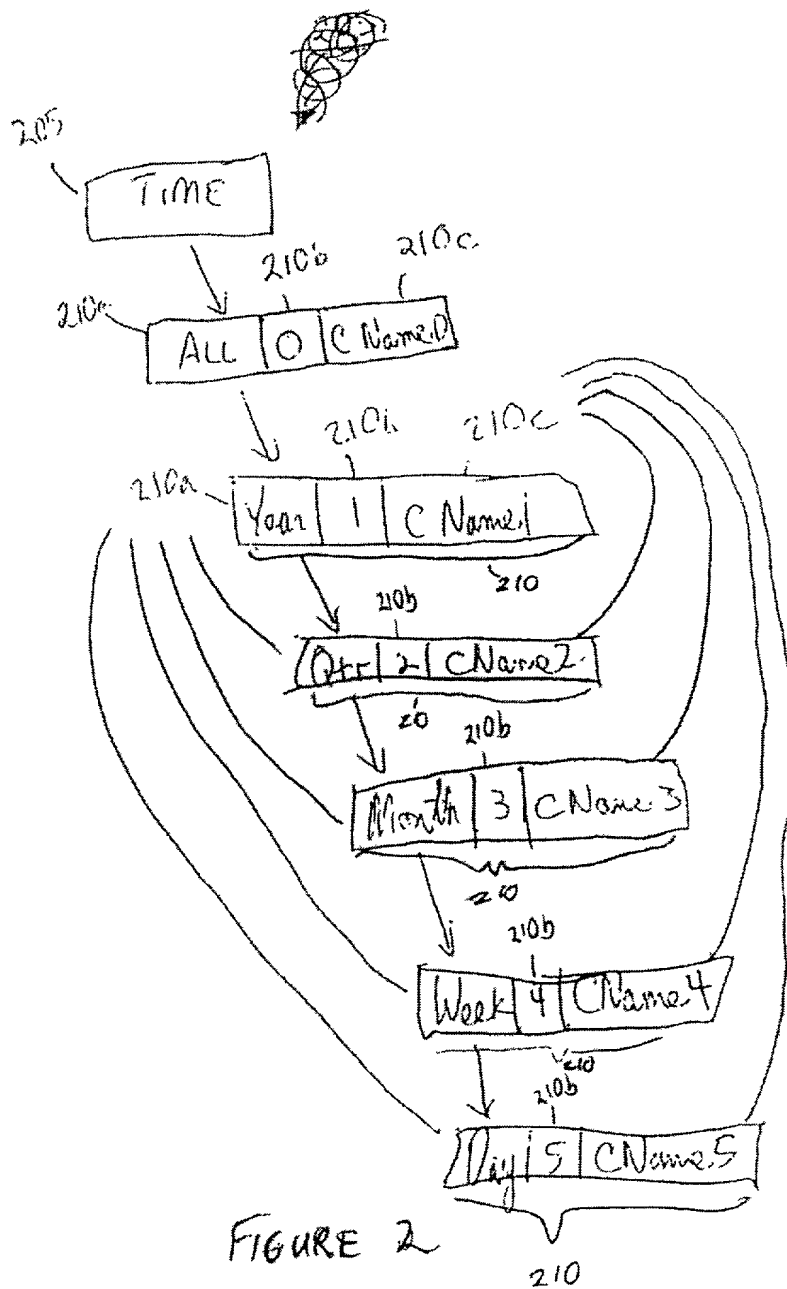 205
TIME
210b 210c
210a
ALL 0 C Name.0
210b 210c
210a
Year 1 C Name.1
210
210b
Qtr 2 CName2.
20
210b
Month 3 CName.3
210
210b
Week 4 CName.4
210
210b
Day 5 CName.5
210
FIGURE 2